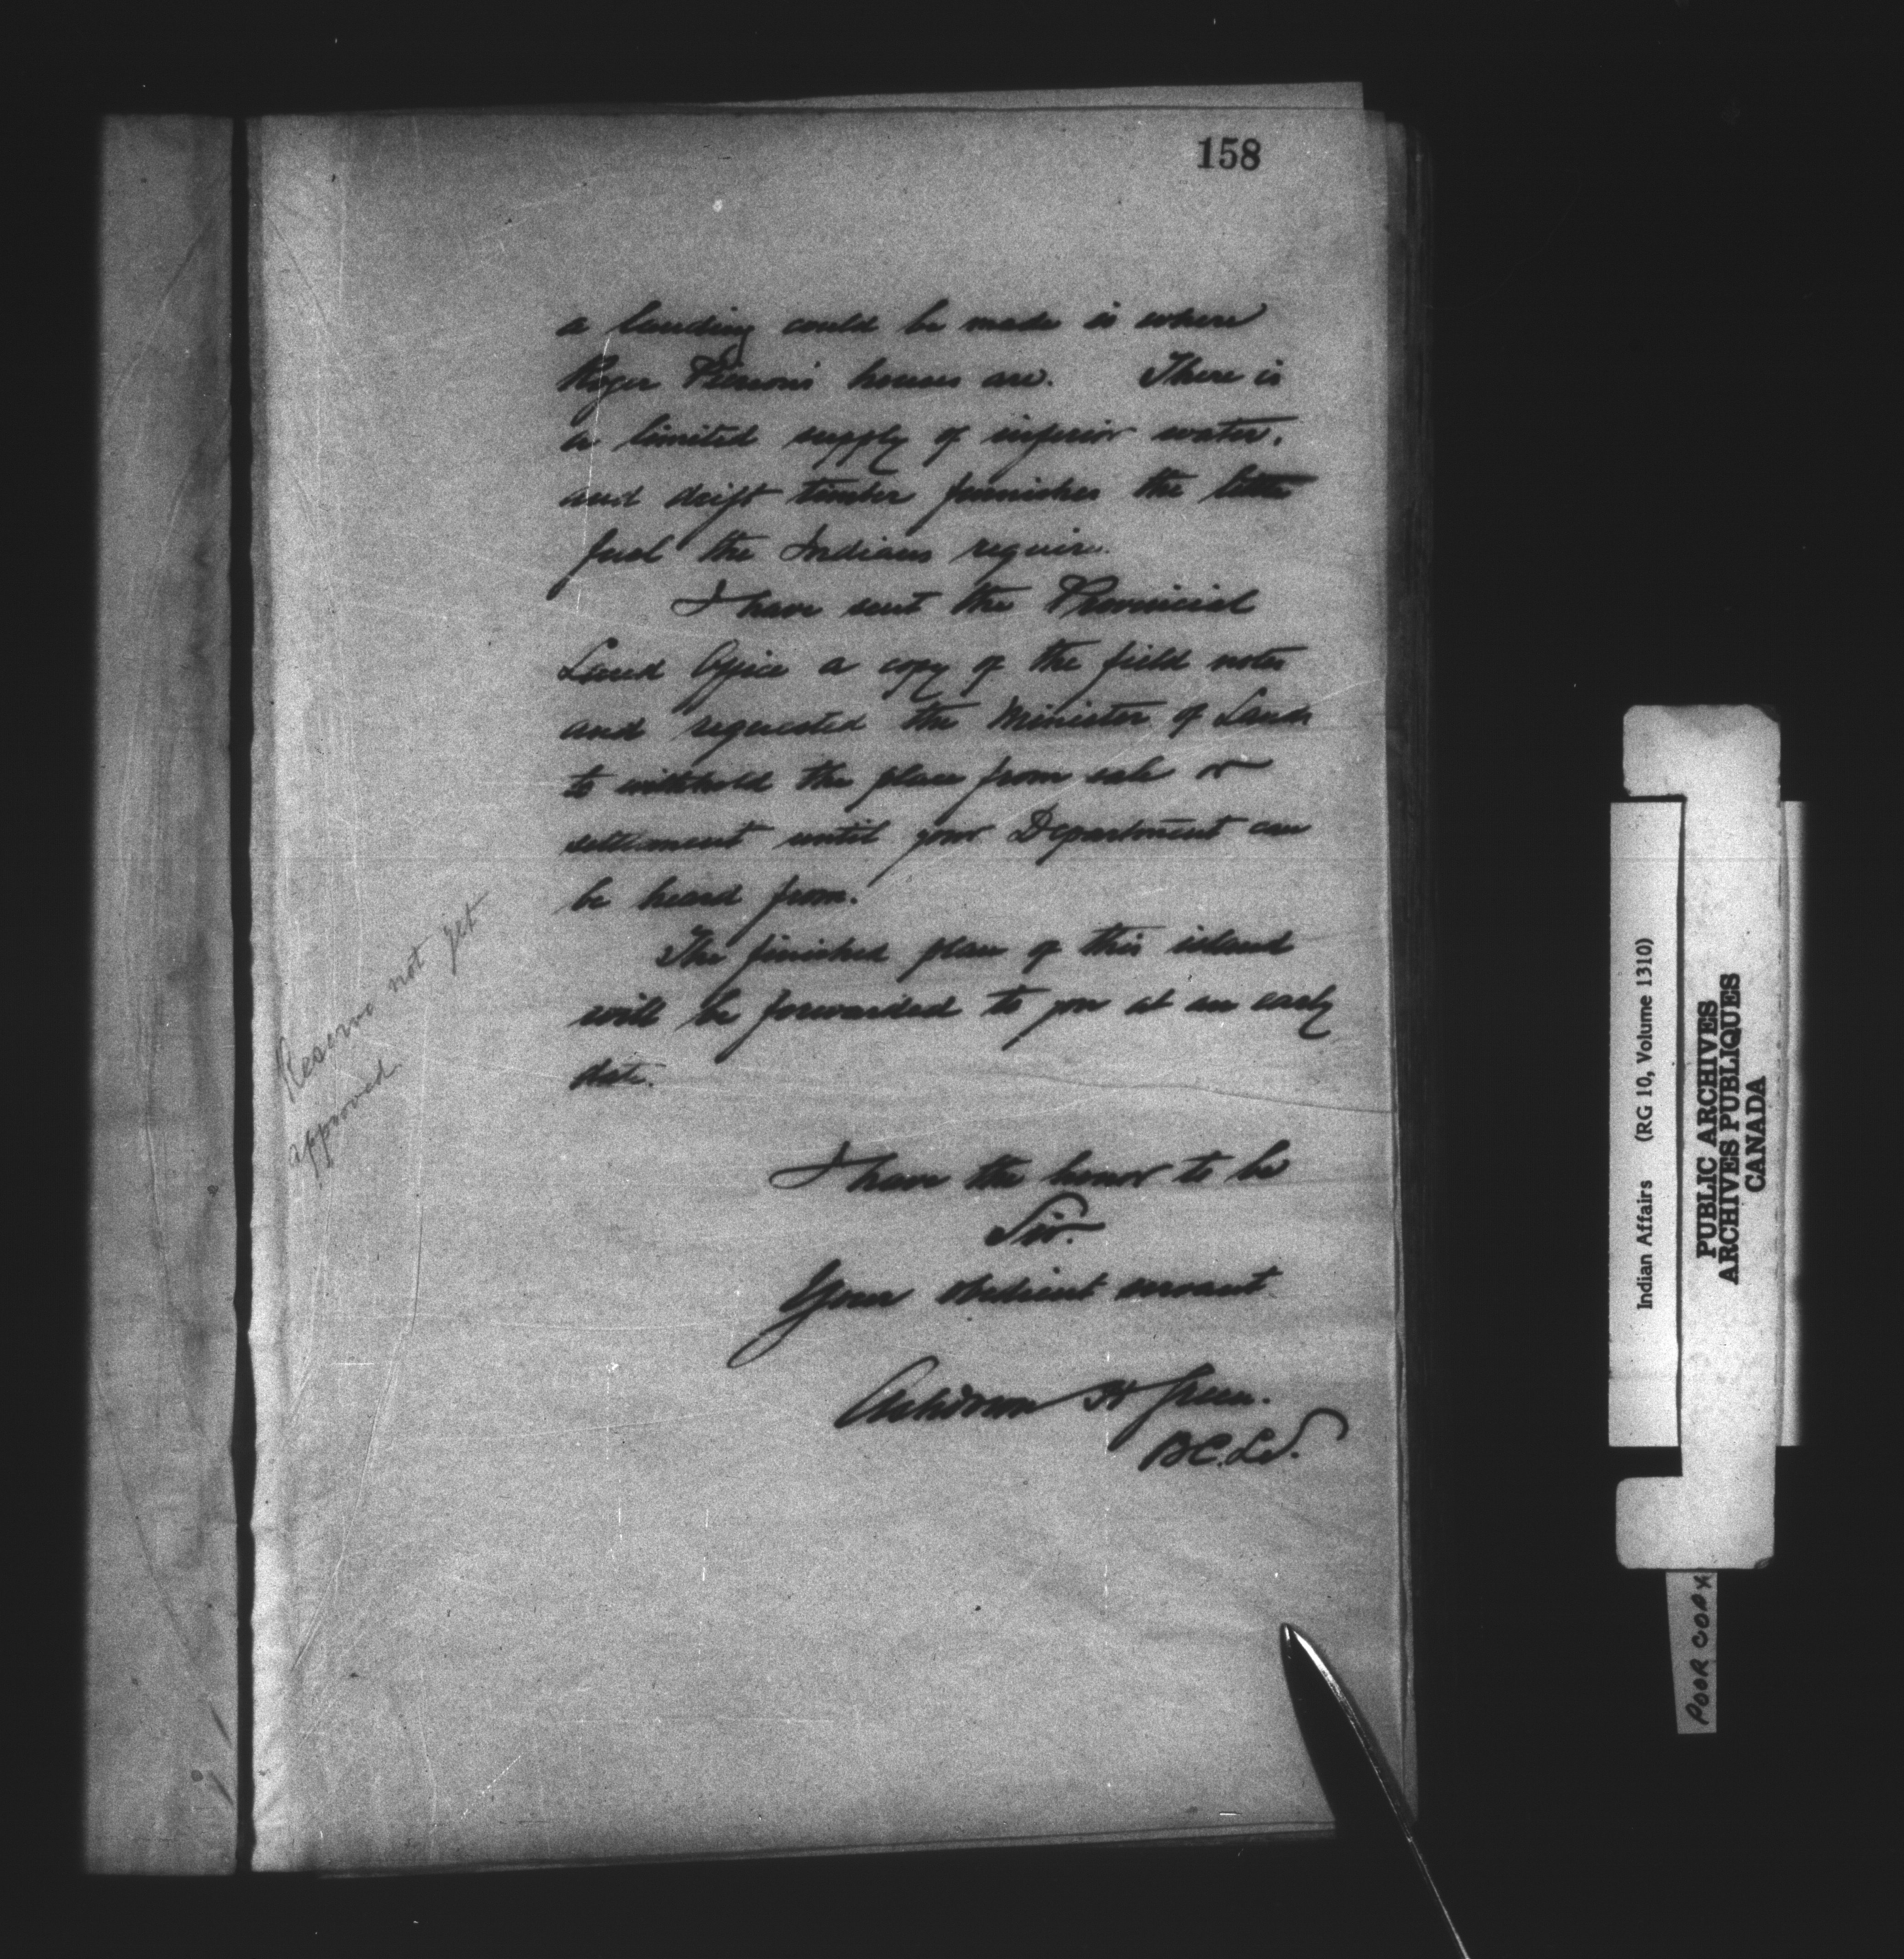 158
a landing could be made is where
Roger houses are. There is
a limited supply of inferior water,
and drift timber furnishes the little
fuel the Indians require.
I have sent the Provincial
Land Office a copy of the field notes
and requested the Minister of Lands
to withhold the place from sale or
settlement until your Department can
be heard from.
The finished plan of this island
will be forwarded to you at an early
date.
Reserve not yet
approved.
I have the honor to be
Sir.
Your obedient servant
Ashdown H Green.
B.C.L.S.
Indian Affairs (RG 10, Volume 1310)
PUBLIC ARCHIVES
ARCHIVES PUBLIQUES
CANADA
POOR COPY